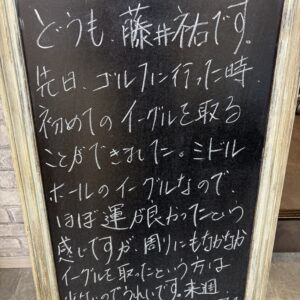 どうも、藤井祐です。
先日、ゴルフに行った時、
初めてのイーグルを取る
ことができました。ミドル
ホールのイーグルなので、
ほぼ運が良かったという
感じですが、周りにもなかなか
イーグルを取ったという方は
少ないのでうれしいです。来週